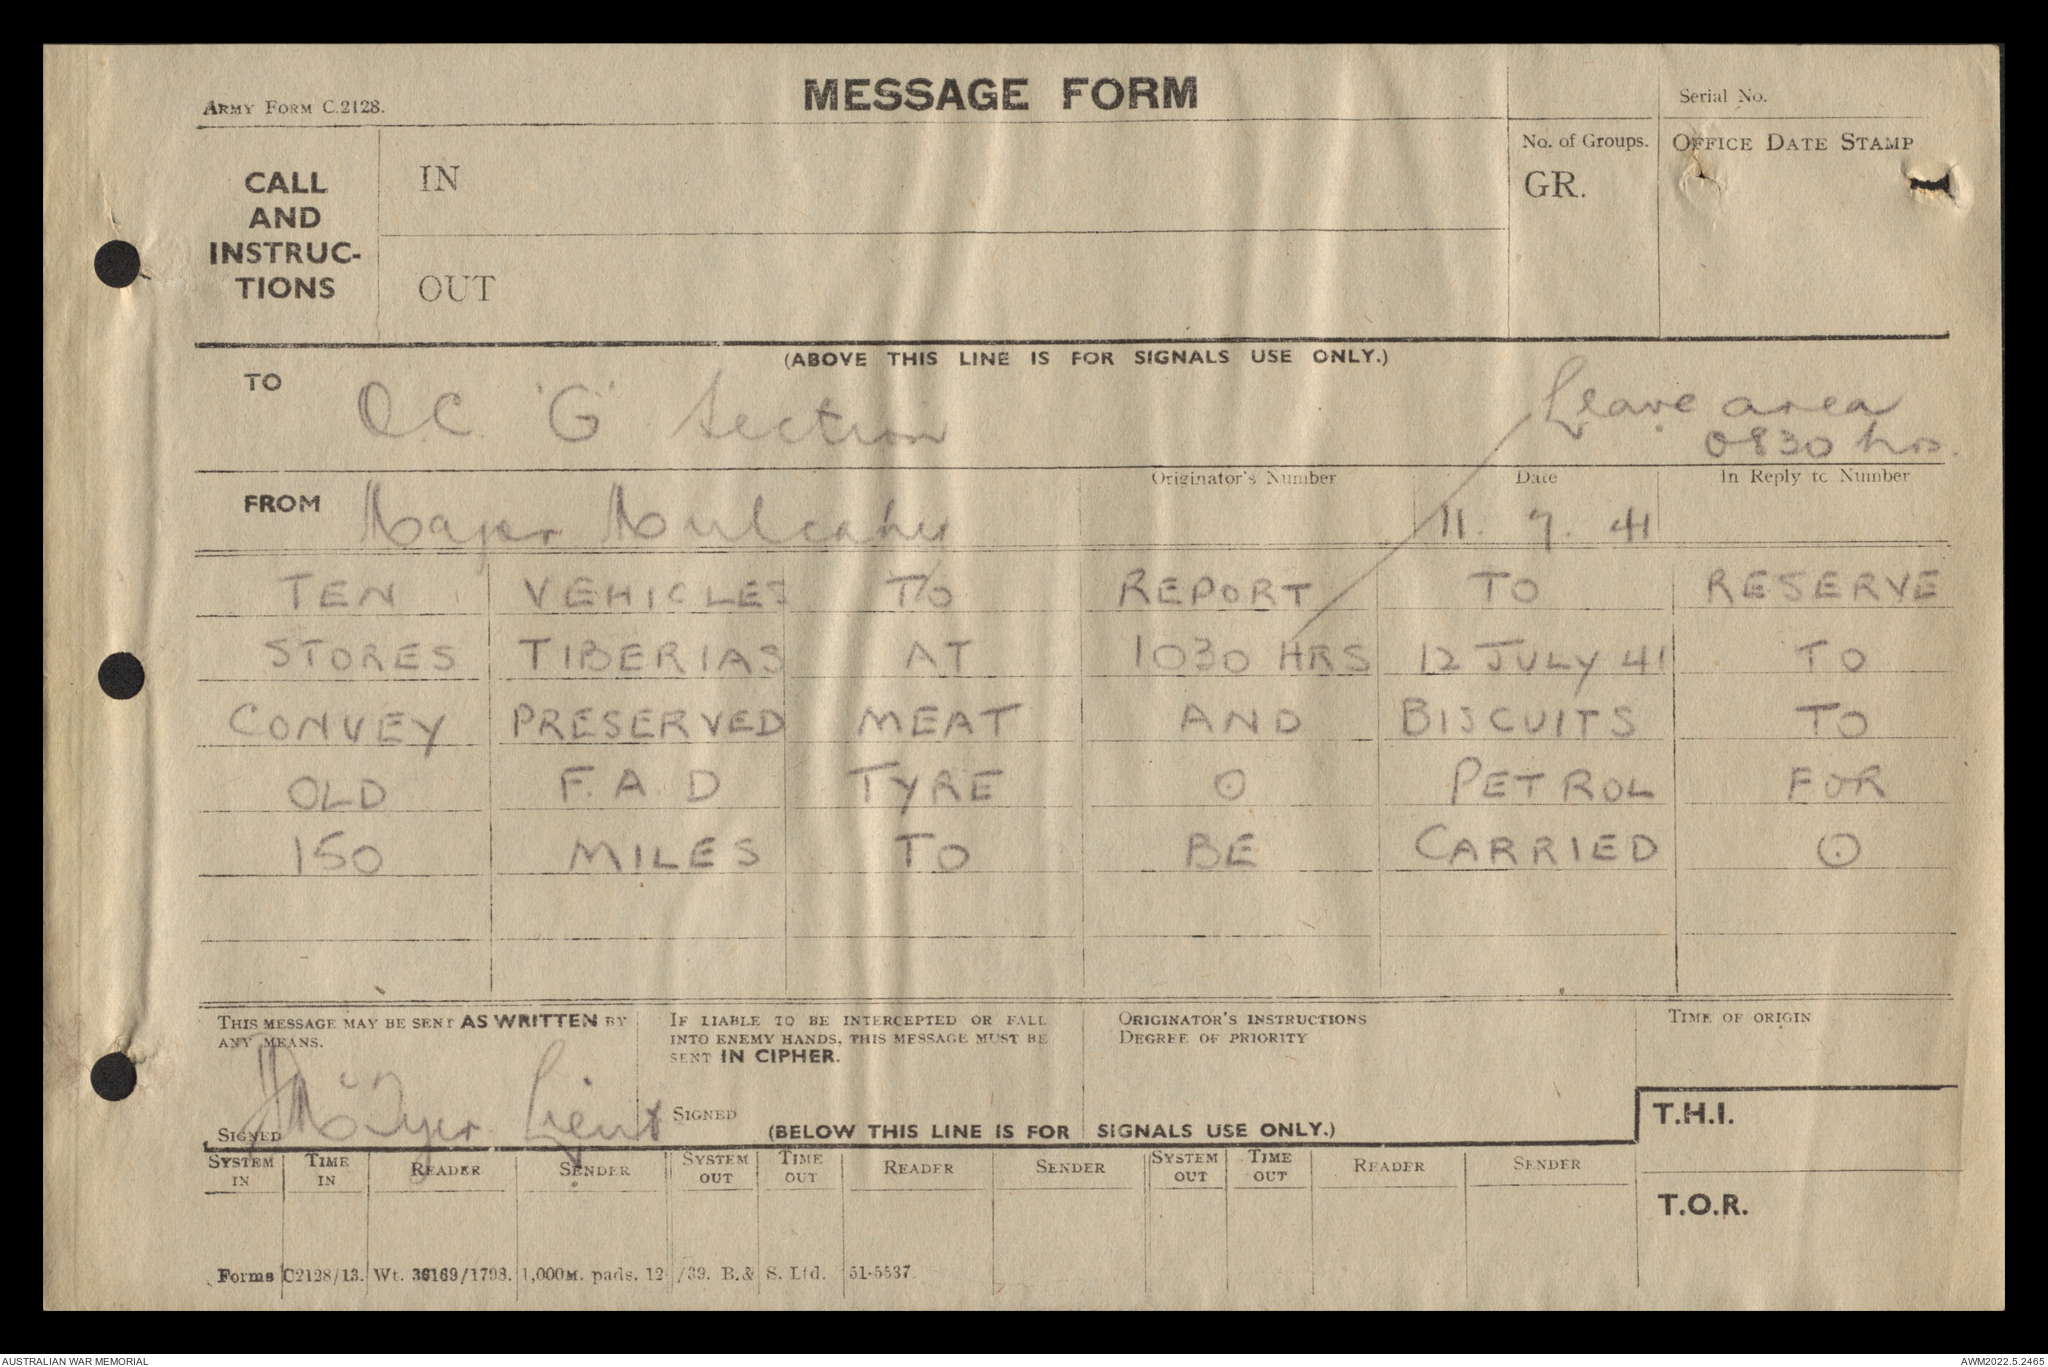 MESSAGE FORM
ARMY FORM C.2128.
Serial No.
CALL AND INSTRUC-TIONS
IN
OUT
No. of Groups.
GR.
OFFICE DATE STAMP
(ABOVE THIS LINE IS FOR SIGNALS USE ONLY.)
TO O.C. 'G' Section
Leave area
0830 hrs.
FROM Major Mulcahy
Originator's Number
Date
11. 7. 41
In Reply to Number
TEN VEHICLES TO REPORT TO RESERVE
STORES TIBERIAS AT 1030 HRS 12 JULY 41 TO
CONVEY PRESERVED MEAT AND BISCUITS TO
OLD F.A.D TYRE ⊙ PETROL FOR
150 MILES TO BE CARRIED ⊙
THIS MESSAGE MAY BE SENT AS WRITTEN BY
ANY MEANS.
SIGNED
Lieut
IF LIABLE TO BE INTERCEPTED OR FALL
INTO ENEMY HANDS, THIS MESSAGE MUST BE
SENT IN CIPHER.
SIGNED
ORIGINATOR'S INSTRUCTIONS
DEGREE OF PRIORITY
TIME OF ORIGIN
(BELOW THIS LINE IS FOR SIGNALS USE ONLY.)
T.H.I.
T.O.R.
SYSTEM IN TIME IN READER SENDER SYSTEM OUT TIME OUT READER SENDER SYSTEM OUT TIME OUT READER SENDER
Forms C2128/13. Wt. 36169/1798. 1,000M. pads. 12/39. B.& S. Ltd. 51-5537.
AUSTRALIAN WAR MEMORIAL
AWM2022.5.2465